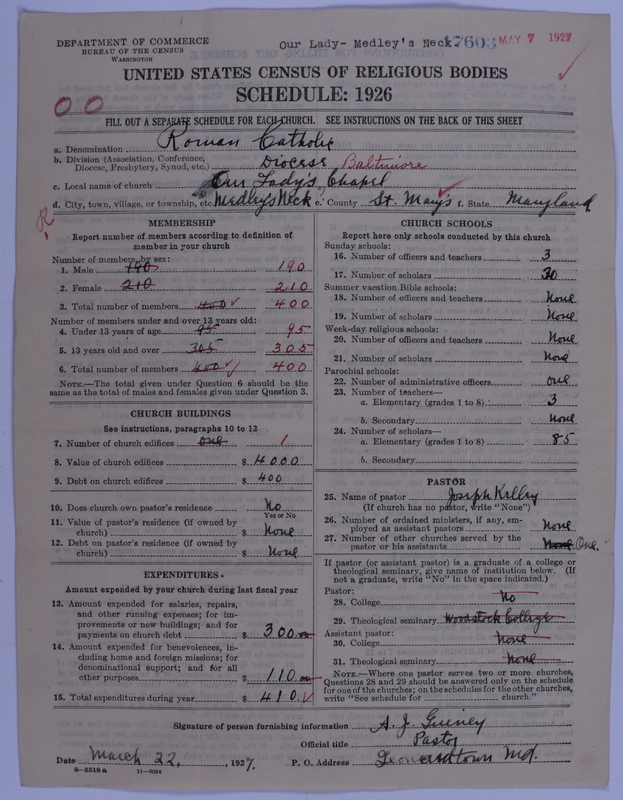 DEPARTMENT OF COMMERCE
BUREAU OF THE CENSUS
WASHINGTON
Our Lady- Medley's Neck.
47603 MAY 7 1927
UNITED STATES CENSUS OF RELIGIOUS BODIES
SCHEDULE: 1926
00
FILL OUT A SEPARATE SCHEDULE FOR EACH CHURCH. SEE INSTRUCTIONS ON THE BACK OF THIS SHEET
a. Denomination Roman Catholic
b. Division (Association, Conference, Diocese, Presbytery, Synod, etc.) Diocese Baltimore
c. Local name of church Our Lady's Chapel
d. City, town, village, or township, etc. Medley's Neck e. County St. Mary's f. State Maryland
R
MEMBERSHIP
Report number of members according to definition of
member in your church
Number of members by sex:
1. Male 190 190
2. Female 210 210
3. Total number of members 400 400
Number of members under and over 13 years old:
4. Under 13 years of age 95 95
5. 13 years old and over 305 305
6. Total number of members 400 400
NOTE.—The total given under Question 6 should be
same as the total of males and females given under Question 3.
CHURCH BUILDINGS
See instructions, paragraphs 10 to 12
7. Number of church edifices one 1
8. Value of church edifices $ 4000
9. Debt on church edifices $ 400
10. Does church own pastor's residence No
Yes or No
11. Value of pastor's residence (if owned by
church) $ None
12. Debt on pastor's residence (if owned by
church) $ None
EXPENDITURES
Amount expended by your church during last fiscal year
13. Amount expended for salaries, repairs,
and other running expenses; for im-
provements or new buildings; and for
payments on church debt $ 300
14. Amount expended for benevolences, in-
cluding home and foreign missions; for
denominational support; and for all
other purposes $ 110
15. Total expenditures during year $ 410
CHURCH SCHOOLS
Report here only schools conducted by this church
Sunday schools:
16. Number of officers and teachers 3
17. Number of scholars 30
Summer vacation Bible schools:
18. Number of officers and teachers None
19. Number of scholars None
Week-day religious schools:
20. Number of officers and teachers None
21. Number of scholars None
Parochial schools:
22. Number of administrative officers one
23. Number of teachers—
a. Elementary (grades 1 to 8) 3
b. Secondary None
24. Number of scholars—
a. Elementary (grades 1 to 8) 85
b. Secondary
PASTOR
25. Name of pastor Joseph Kelley
(If church has no pastor, write "None")
26. Number of ordained ministers, if any, em-
ployed as assistant pastors None
27. Number of other churches served by the
pastor or his assistants None One.
If pastor (or assistant pastor) is a graduate of a college or
theological seminary, give name of institution below. (If
not a graduate, write "No" in the space indicated.)
Pastor:
28. College No
29. Theological seminary Woodstock College
Assistant pastor:
30. College None
31. Theological seminary None
NOTE.—Where one pastor serves two or more churches,
Questions 28 and 29 should be answered only on the schedule
for one of the churches; on the schedules for the other churches,
write "See schedule for church."
Signature of person furnishing information A. J. Guiney
Official title Pastor
Date March 22, 1927. P. O. Address Leonardtown Md.
8—5518a 11—9054